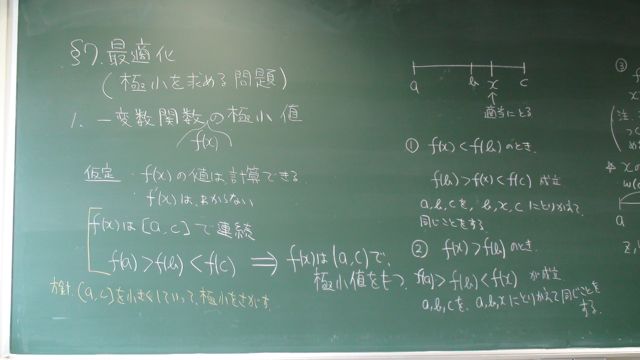 §7. 最適化
(極小を求める問題)
1. 一変数関数の極小値
f(x)
仮定 ・f(x)の値は計算できる
f'(x)は、わからない
f(x)は[a,c]で連続
f(a)>f(b)<f(c) ⇒ f(x)は(a,c)で、
極小値をもつ。
方針. (a,c)を小さくしていって、極小をさがす.
a b x c
↑
適当にとる
① f(x)<f(b)のとき.
f(b)>f(x)<f(c) 成立
a,b,cを, b,x,cにとりかえて
同じことをする
② f(x)>f(b)のとき.
f(a)>f(b)<f(x) が成立
a,b,cを, a,b,xにとりかえて同じことを
する.
③
a